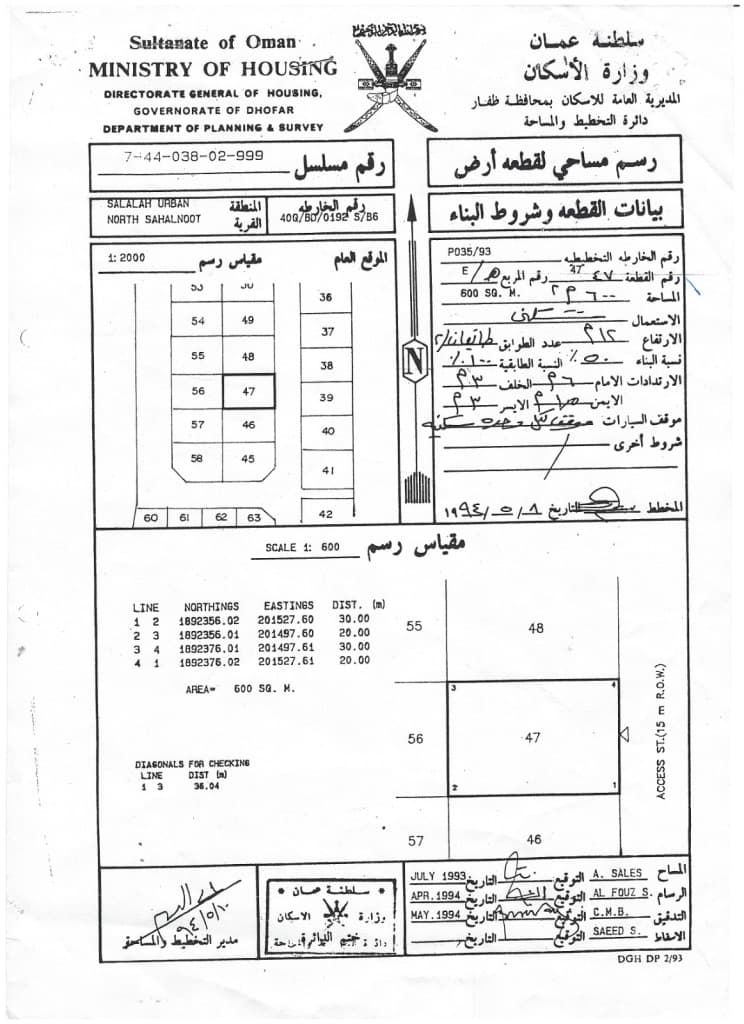 Sultanate of Oman
MINISTRY OF HOUSING
DIRECTORATE GENERAL OF HOUSING,
GOVERNORATE OF DHOFAR
DEPARTMENT OF PLANNING & SURVEY
سلطنة عمان
وزارة الأسكان
المديرية العامة للاسكان بمحافظة ظفار
دائرة التخطيط والمساحة
7-44-038-02-999 رقم مسلسل
رسم مساحي لقطعه أرض
SALALAH URBAN المنطقة
NORTH SAHALNOOT القرية
رقم الخارطه
40Q/BD/0192 S/B6
بيانات القطعه وشروط البناء
1:2000 مقياس رسم الموقع العام
53
54 49
55 48
56 47
57 46
58 45
60 61 62 63
36
37
38
39
40
41
42
N
رقم الخارطه التخطيطيه P035/93
رقم القطعة ٤٧ 47 رقم المربع ه/ E
المساحة ٦٠٠ م٢ 600 SQ. M.
الاستعمال سكني
الارتفاع ١٢م عدد الطوابق طابقان/٢
نسبة البناء ٥٠٪ النسبة الطابقية ١٠٠٪
الارتدادات الامام ٦م الخلف ٣م
الايمن الايسر ٣م
موقف السيارات موقف لكل وحدة سكنيه
شروط أخرى
المخطط التاريخ ١٩٩٤/٥/٨
SCALE 1: 600 مقياس رسم
LINE NORTHINGS EASTINGS DIST. (m)
1 2 1892356.02 201527.60 30.00
2 3 1892356.01 201497.60 20.00
3 4 1892376.01 201497.61 30.00
4 1 1892376.02 201527.61 20.00
AREA= 600 SQ. M.
DIAGONALS FOR CHECKING
LINE DIST (m)
1 3 36.04
55 48
3 4
56 47
2 1
57 46
ACCESS ST.(15 m R.O.W.)
٩٤/٥/١٠
مدير التخطيط والمساحة
سلطنة عمان
وزارة الاسكان
ختم الدائرة
JULY 1993 التاريخ التوقيع A. SALES المساح
APR.1994 التاريخ التوقيع AL FOUZ S. الرسام
MAY.1994 التاريخ التوقيع C.M.B. التدقيق
التاريخ التوقيع SAEED S. الاسقاط
DGH DP 2/93